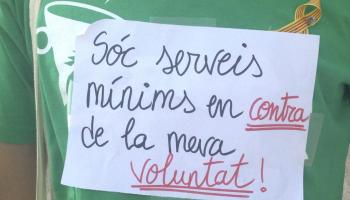 Sóc serveis
mínims en contra
de la meva
voluntat!